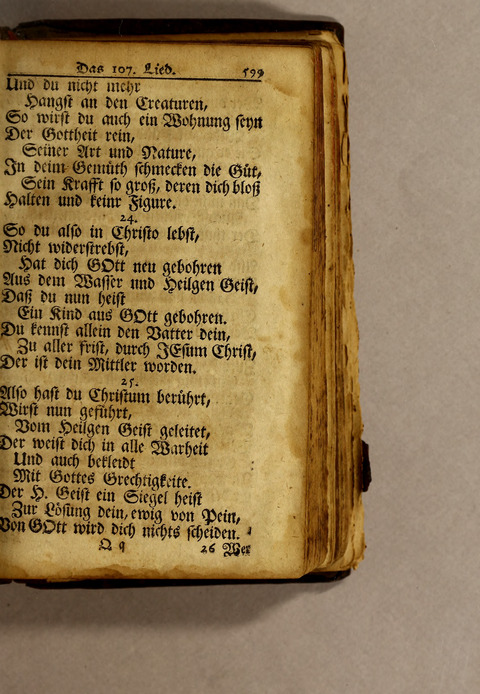 Das 107. Lied. 599
Und du nicht mehr
Hangst an den Creaturen,
So wirst du auch ein Wohnung seyn
Der Gottheit rein,
Seiner Art und Nature,
In deim Gemüth schmecken die Güt,
Sein Krafft so groß, deren dich bloß
Halten und keinr Figure.
24.
So du also in Christo lebst,
Nicht widerstrebst,
Hat dich GOtt neu gebohren
Aus dem Wasser und Heilgen Geist,
Daß du nun heist
Ein Kind aus GOtt gebohren.
Du kennst allein den Vatter dein,
Zu aller frist, durch JEsum Christ,
Der ist dein Mittler worden.
25.
Also hast du Christum berührt,
Wirst nun geführt,
Vom Heilgen Geist geleitet,
Der weist dich in alle Warheit
Und auch bekleidt
Mit Gottes Grechtigkeite.
Der H. Geist ein Siegel heist
Zur Lösung dein, ewig von Pein,
Von GOtt wird dich nichts scheiden.
Q q 26 Wer